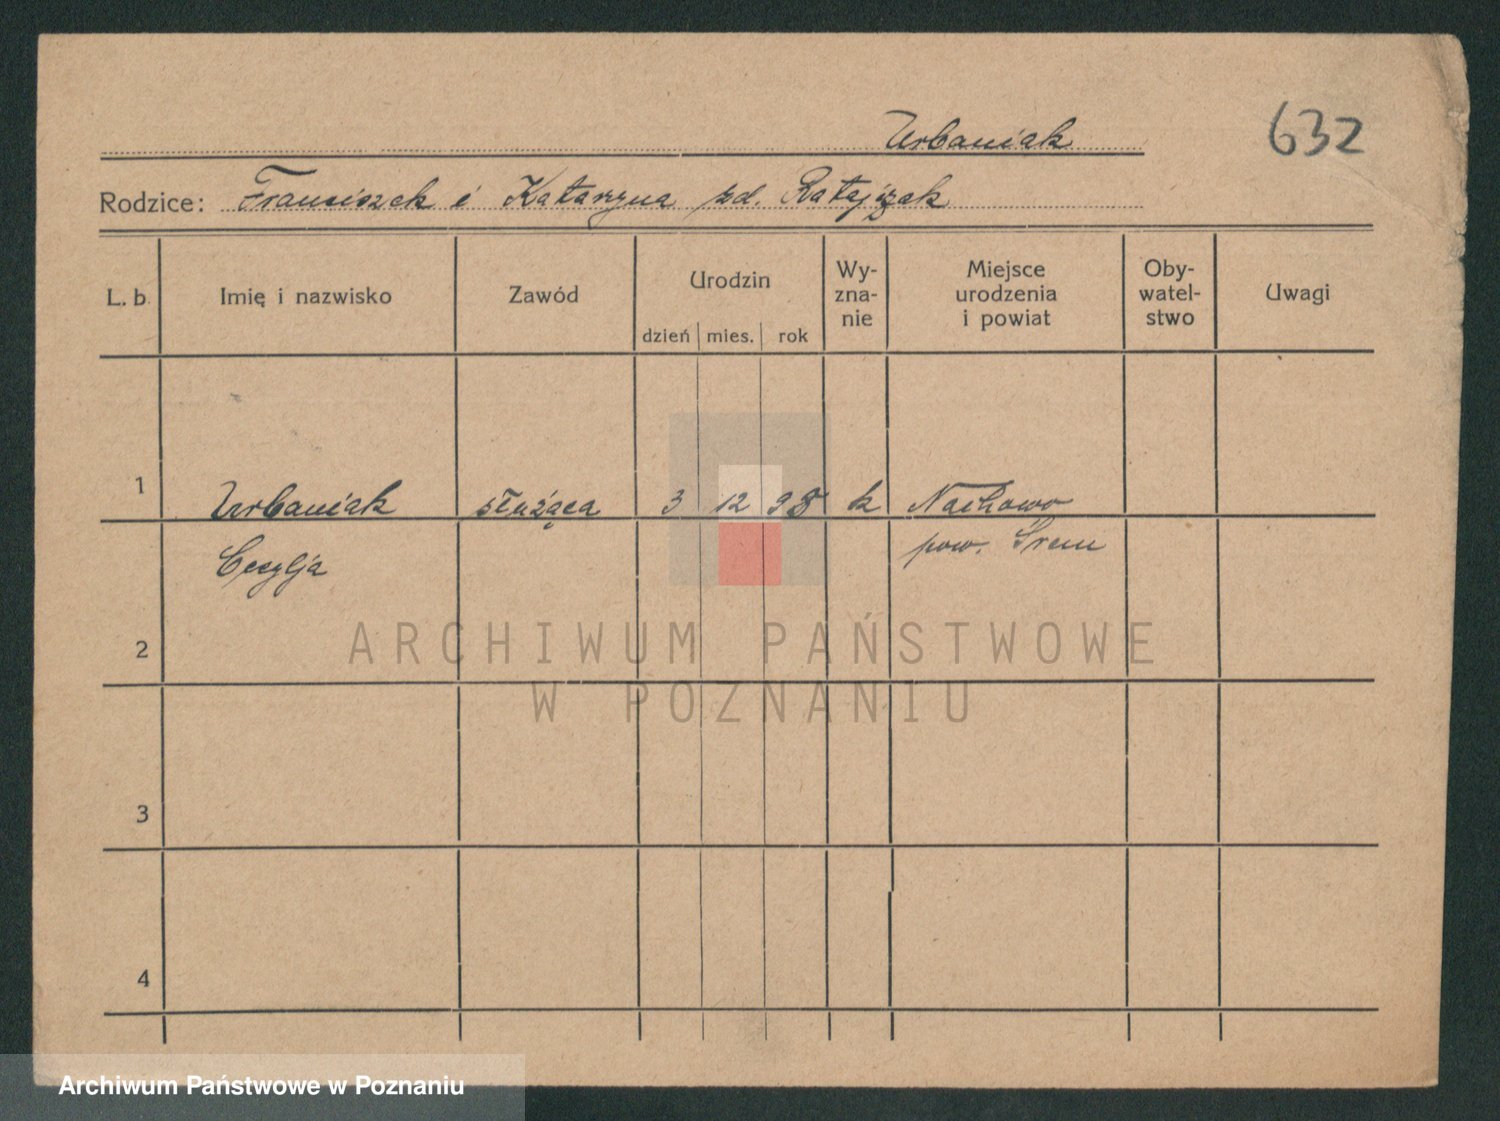 Urbaniak
632
Rodzice: Franciszek i Katarzyna zd. Ratajczak
L. b. Imię i nazwisko Zawód Urodzin dzień mies. rok Wy-zna-nie Miejsce urodzenia i powiat Oby-watel-stwo Uwagi
1 Urbaniak służąca 3 12 98 k Nachowo
Cecylja pow. Śrem
2
ARCHIWUM PAŃSTWOWE
W POZNANIU
3
4
Archiwum Państwowe w Poznaniu